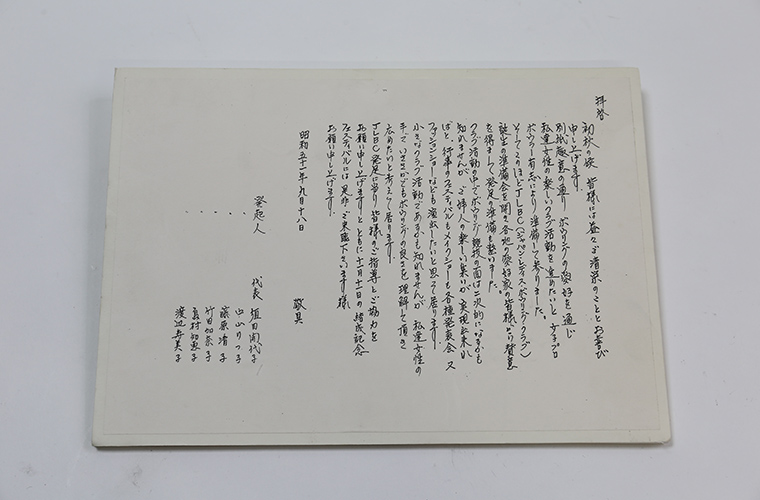 拝啓
初秋の候 皆様には益々ご清栄のこととお喜び
申し上げます。
別紙趣意の通り ボウリングの愛好を通じ
私達女性の楽しいクラブ活動を進めたいと 女子プロ
ボウラー有志により準備して参りました。
そしてこのほどJLBC(ジャパンレディスボウリングクラブ)
誕生の準備会を開き各地の愛好家の皆様より賛意
を得まして 発足の準備も整いました。
クラブ活動の中でボウリング競技の面は二次的になるかも
知れませんが、ご婦人の楽しい集いが実現出来れ
ばと、行事のフェスティバルもメイクショーも各種発表会 又
ファッションショーなども演出したいと思って居ります。
小さなクラブ活動であるかも知れませんが 私達女性の
手で、いささかでもボウリングの良さを理解して頂き
広めたいと考えて居ります。
JLBC発足に当り皆様のご指導とご協力を
お願い申し上げますとともに十一月十一日の結成記念
フェスティバルには是非ご来臨下さいます様
お願い申し上げます。
敬具
昭和五十一年九月十八日
発起人
代表 植田開代子
中山りつ子
藤原清子
竹田加奈子
真村加恵子
渡辺寿美子